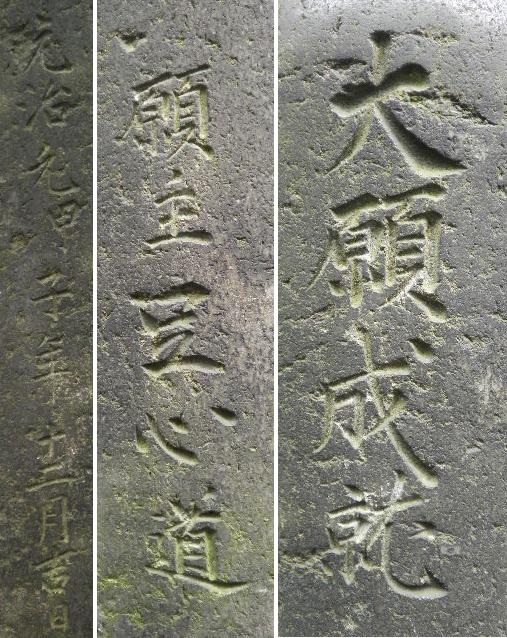 大願成就
願主心道
治元甲子年十二月吉日